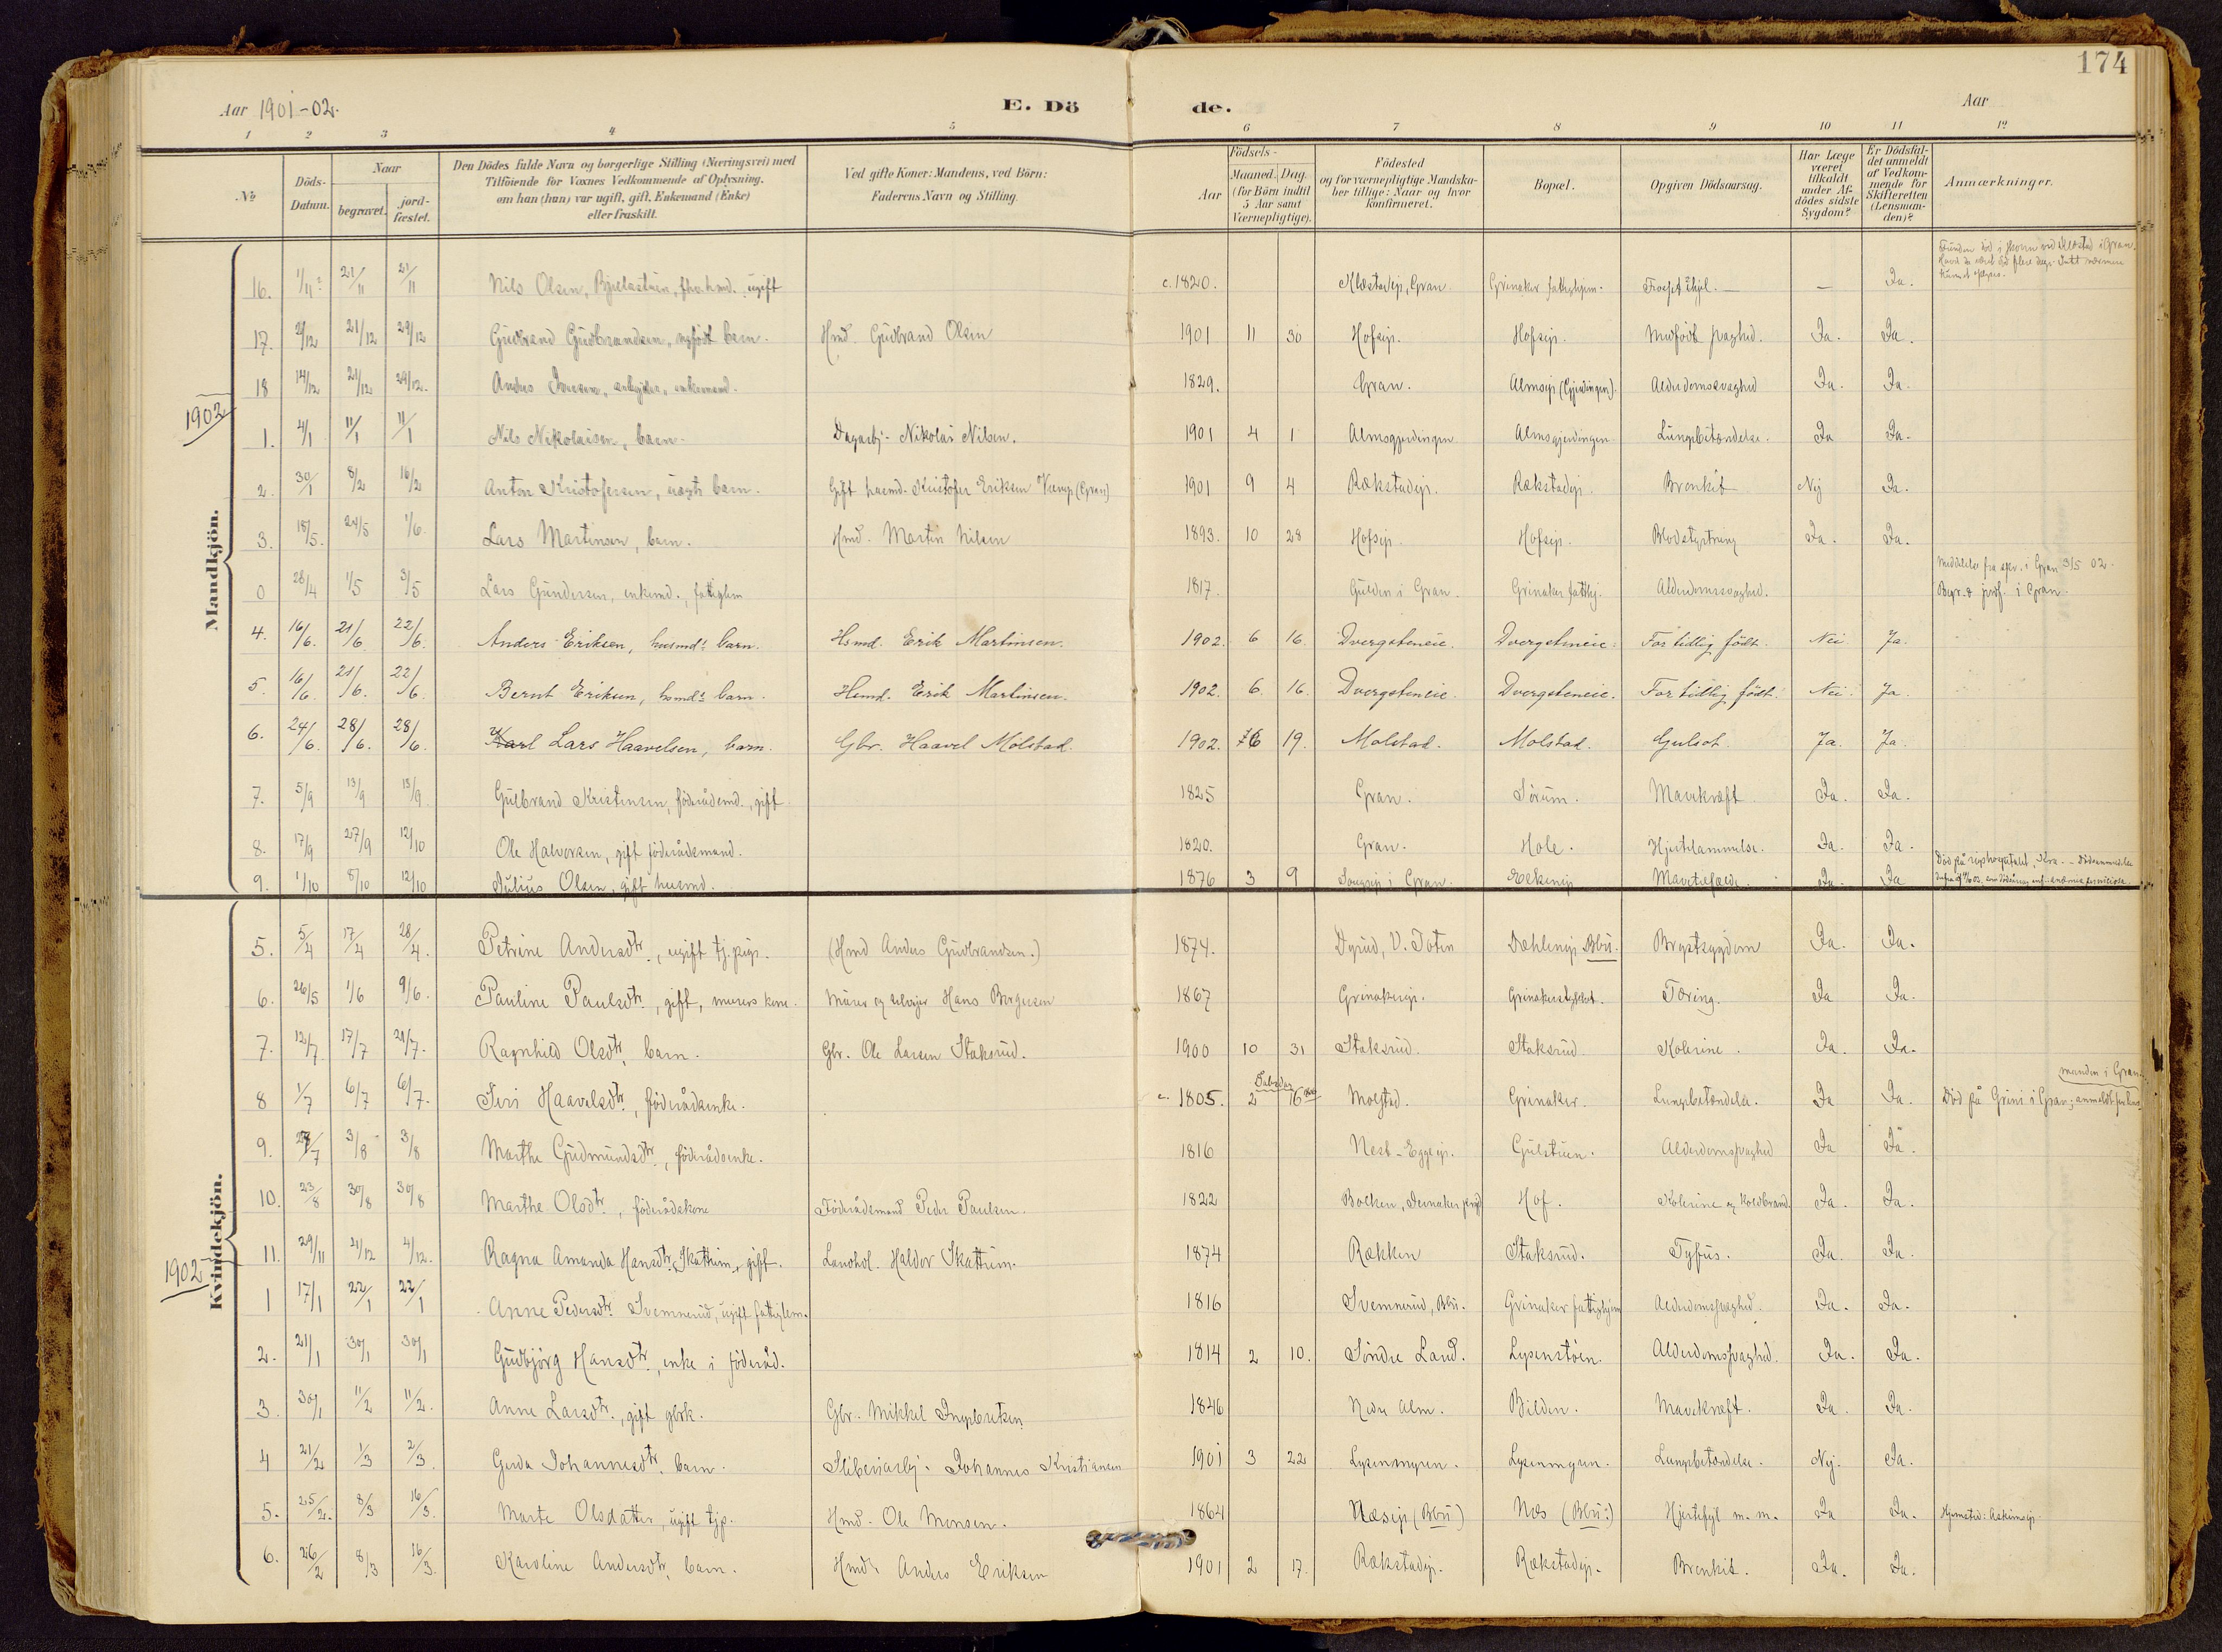 174
Aar 1901-02.
E. Dö de.
Aar
1 2 3 4 5 6 7 8 9 10 11 12
No
Döds-Datum.
Naar
begravet.
jord-fæstet.
Den Dödes fulde Navn og borgerlige Stilling (Næringsvei) med
Tilföiende for Voxnes Vedkommende af Oplysning.
om han (hun) var ugift, gift, Enkemand (Enke)
eller fraskilt.
Ved gifte Koner: Mandens, ved Börn:
Faderens Navn og Stilling.
Födsels-
Aar
Maaned. Dag.
(for Börn indtil
5 Aar samt
Værnepligtige).
Födested
og for værnepligtige Mandska-
ber tillige: Naar og hvor
konfirmeret.
Bopæl.
Opgiven Dödsaarsag.
Har Læge
været
tilkaldt
under Af-
dödes sidste
Sygdom?
Er Dödsfal-
det anmeldt
af Vedkom-
mende for
Skifteretten
(Lensman-
den)?
Anmærkninger.
Mandkjön.
16. 1/11? 21/11 21/11 Nils Olsen, ugift c. 1820. Gran. Grinaker Ja.
17. 21/12 29/12 Gudbrand Gudbrandsen, nyfødt barn. Hmd. Gudbrand Olsen 1901 11 30 Hofsejr. Hofsejr. Medfødt svaghed. Ja. Ja.
18 14/12 21/12 29/12. Anders Iversen, enkemand. 1829. Gran. Alderdomssvaghed Ja. Ja.
1902
1. 4/1 11/1 11/1 Nils Nikolaisen, barn. Dagarbj. Nikolai Nilsen. 1901 4 1 Almsgjerdingen Almsgjerdingen Lungebetændelse. Ja Ja.
2. 30/1 8/2 16/2 Anton Kristofersen, uægte barn. Gift husmd. Kristofer Eriksen (Gran) 1901 9 4 Rækstadejr. Rækstadejr. Bronkit Nej Ja.
3. 18/5. 24/5 1/6. Lars Martinsen, barn. Hmd. Martin Nilsen 1893. 10 28 Hofsejr. Hofsejr. Blodstyrtning Ja. Ja.
0 28/4 1/5 3/5 Lars Gundersen, enkemd., fattiglem 1817. Gulden i Gran. Grinaker fatthj. Alderdomssvaghed. Meddelelse fra spr. i Gran 3/5 02.
Begr. & jordf. i Gran.
4. 16/6. 21/6. 22/6. Anders Eriksen, husmds barn. Hsmd. Erik Martinsen. 1902. 6 16. Dvergsteneie. Dvergsteneie. For tidlig födt. Nei. Ja.
5. 16/6. 21/6. 22/6. Bernt Eriksen, hsmds barn. Hsmd. Erik Martinsen. 1902. 6. 16. Dvergsteneie. Dvergsteneie. For tidlig födt. Nei. Ja.
6. 24/6. 28/6. 28/6. Karl Lars Haavelsen, barn. Gbr. Haavel Mölstad. 1902. 6 19. Molstad. Molstad. Gulsot. Ja. Ja.
7. 5/9 13/9 13/9. Gulbrand Kristensen, föderådsmd., gift 1825 Gran. Sörum. Mavekræft. Ja. Ja.
8. 17/9 27/9 12/10 Ole Halvorsen, gift föderådsmand. 1820. Gran. Hole. Hjertelammelse. Ja. Ja.
9. 1/10 8/10 12/10 Julius Olsen, gift husmd. 1876 3 9 i Gran. Ja. Ja Död på rigshospitalet, Kra.
Kvindekjön.
5. 5/4 17/4 28/4. Petrine Andersdtr., ugift tj.pige. (Hmd Anders Gudbrandsen.) 1874. Dyrud, V. Toten Brystsygdom Ja. Ja.
6. 26/5 1/6 9/6. Pauline Paulsdtr., gift, murers kone. Murer og selvejer Hans Børgesen 1867 Grinakerejr. Tæring. Ja Ja.
7. 12/7 17/7 29/7. Ragnhild Olsdtr. barn. Gbr. Ole Larsen Staksrud. 1900 10 31 Staksrud. Staksrud. Kolerine. Ja. Ja.
8 1/7 6/7 6/7. Siri Haavelsdtr., föderådsenke. c. 1805. 2 16 Molstad. Grinaker. Lungebetændelse. Ja Ja. Död på Grini i Gran; anmeldt
manden i Gran.
9. 27/7 3/8 3/8 Marthe Gudmundsdtr., föderådsenke. 1816 Gulstuen. Alderdomssvaghed Ja Ja.
10. 23/8 30/8 30/8 Marthe Olsdtr., föderådskone Föderådsmand Peder Paulsen. 1822 Hof. Kolerine og Koldbrand. Ja. Ja.
11. 29/11 4/12 4/12. Ragna Amanda Hansdtr. Skattum, gift. Landhdl. Haldor Skattum. 1874 Rækken Staksrud. Tyfus. Ja. Ja.
1902
1 17/1 22/1 22/1 Anne Pedersdtr. Svenmerud, ugift fattiglem. 1816 Svenmerud, Bbu. Grinaker fattighjem Alderdomssvaghed. Ja. Ja.
2. 21/1 30/1 30/1 Gudbjörg Hansdtr., enke i föderåd. 1814 2 10. Söndre Land. Lysenstöen. Alderdomssvaghed. Ja. Ja.
3. 30/1 11/2 11/2. Anne Larsdtr., gift gbrk. Gbr. Mikkel Ingebretsen 1846 Nedre Alm. Bilden. Mavekræft. Ja. Ja.
4 21/2 1/3 2/3. Gerda Johannesdtr. barn. Sliberiarbj. Johannes Kristiansen 1901 3 22 Lysenmyren. Lysenmyren. Lungebetændelse. Nej. Ja.
5. 25/2. 8/3 16/3. Marte Olsdatter, ugift tjp. Hmd. Ole Monsen. 1864 Næsejr (Bbu) Næs (Bbu:) Hjertefejl m. m. Ja Ja. Hjemsted: Askimsejr.
6. 26/2 8/3 16/3. Karoline Andersdtr, barn. Hmd. Anders Eriksen 1901 2 17. Rækstadejr. Rækstadejr. Bronkit. Ja. Ja.